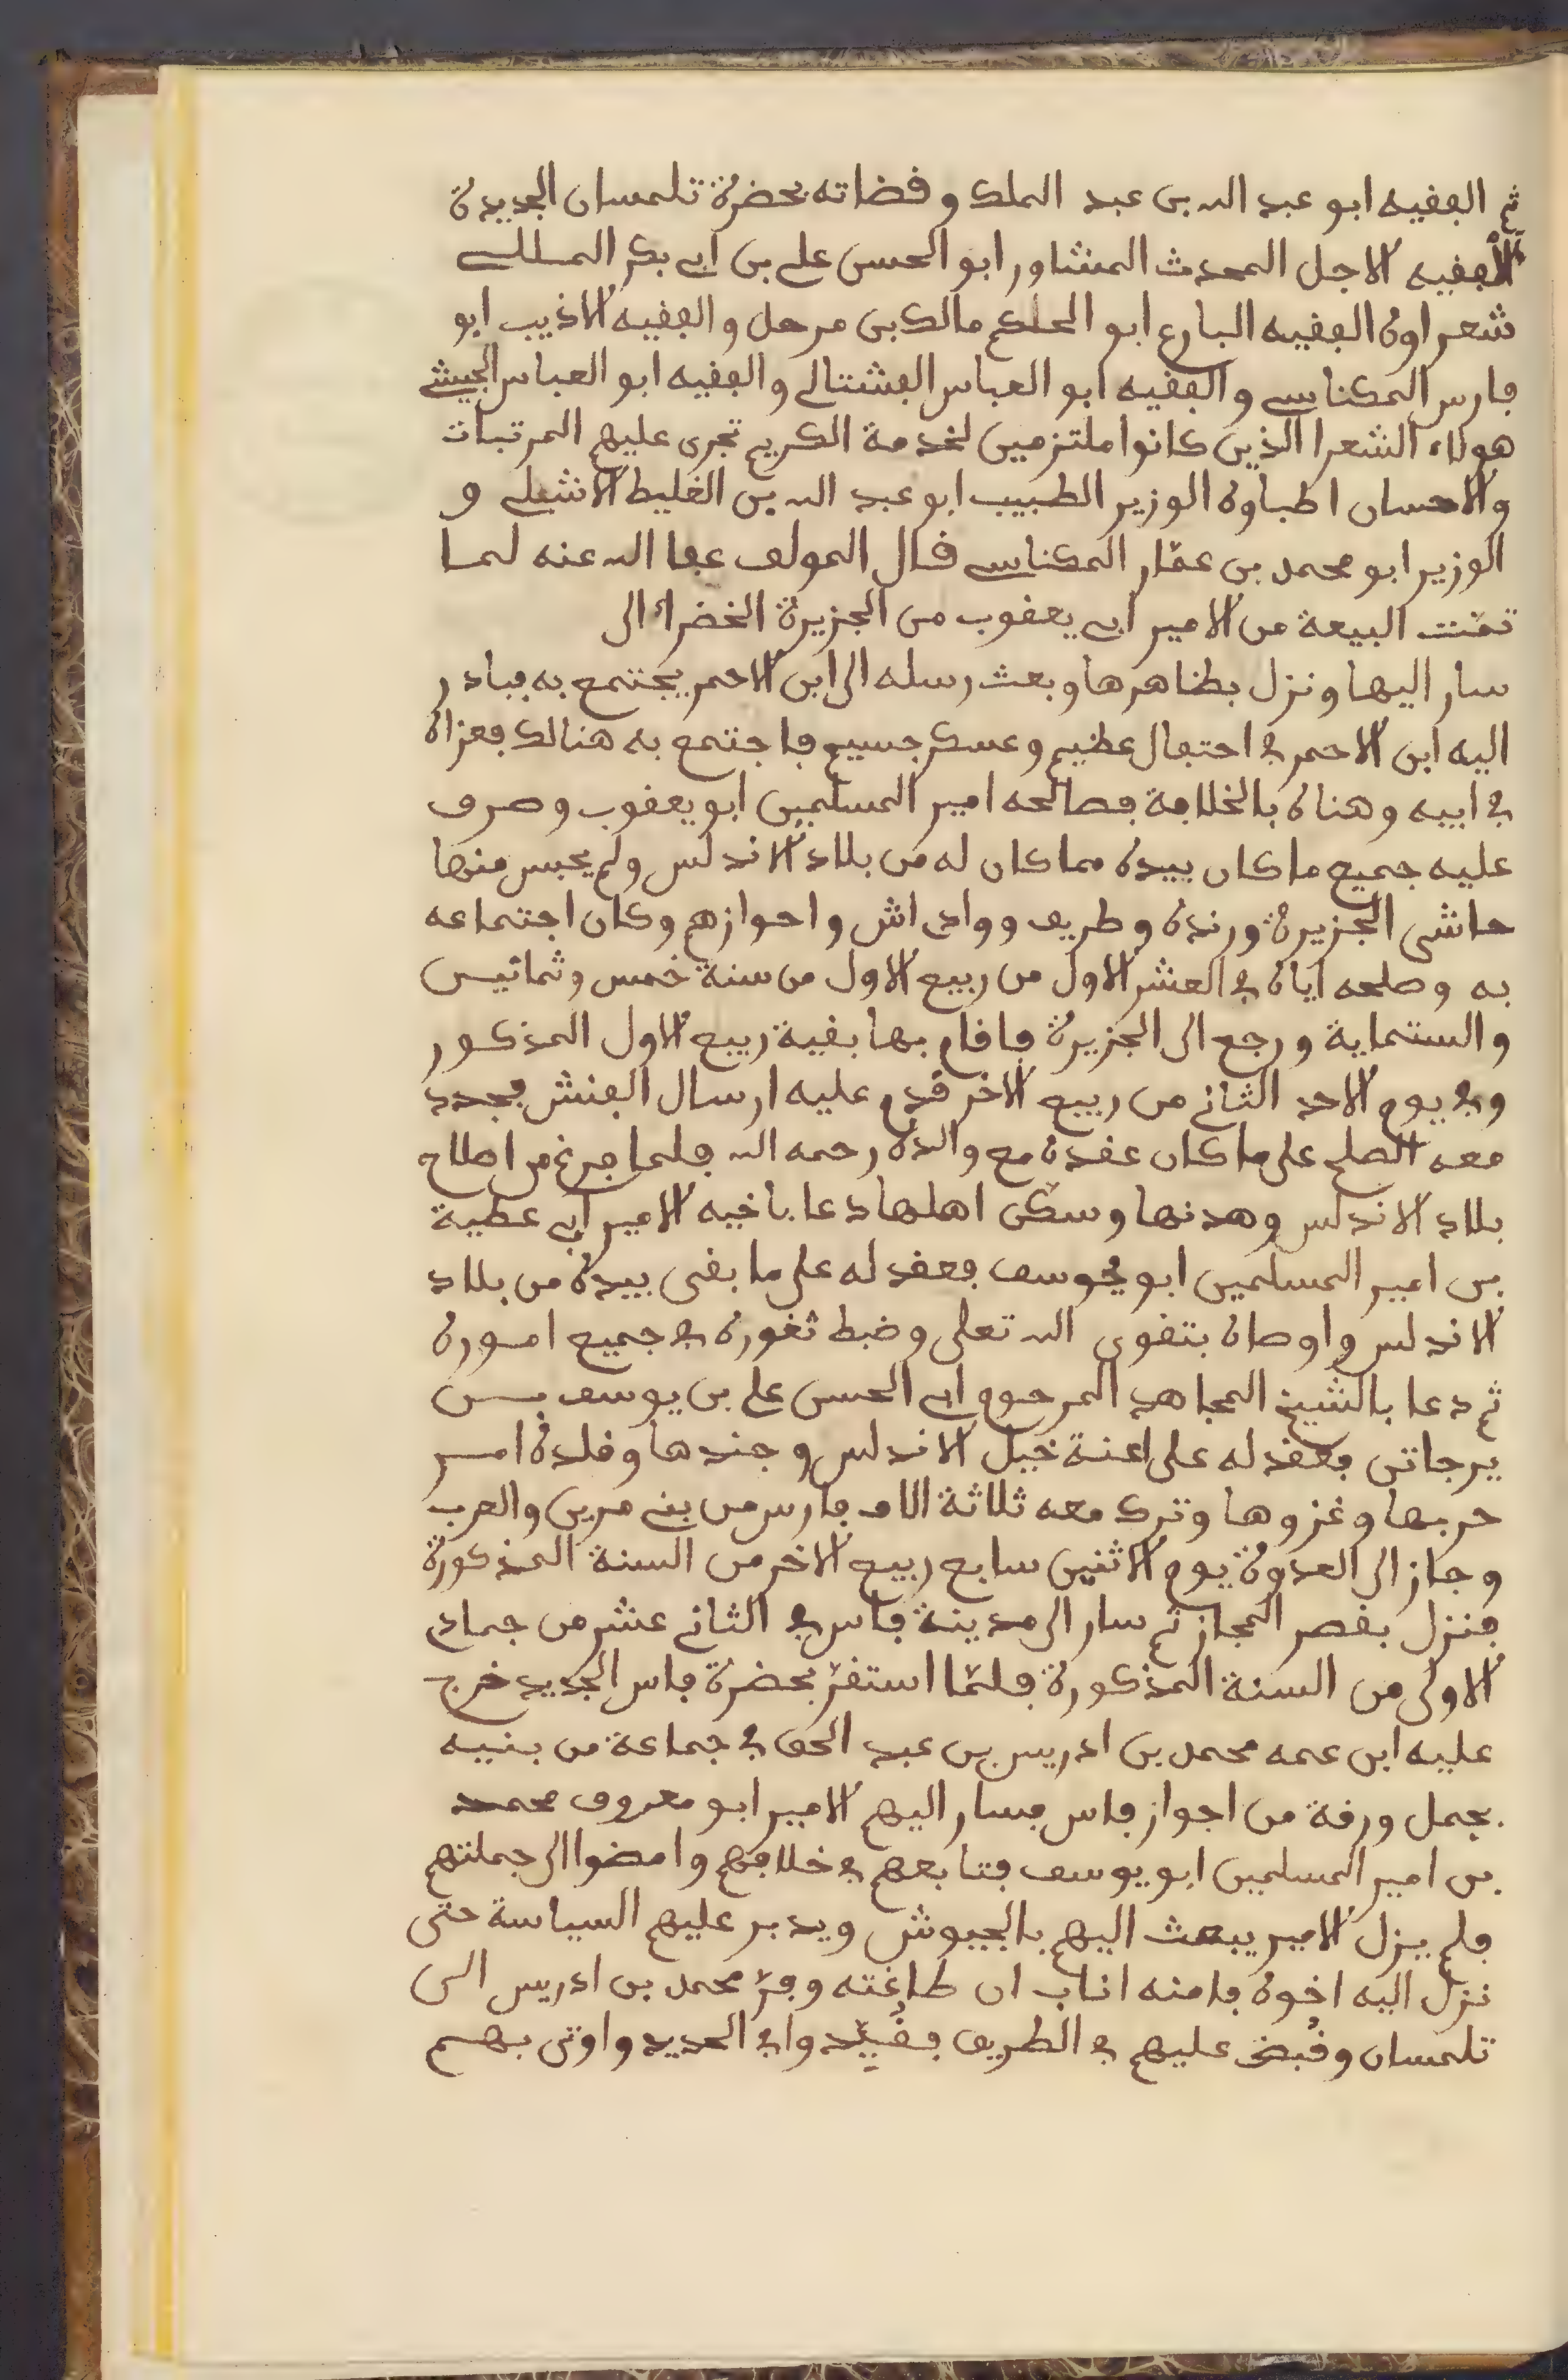 ثم الفقيه ابو عبد الله بن عبد الملك وقضاته بحضرة تلمسان الجديدة
الفقيه الاجل المحدث المشاور ابو الحسن علي بن ابي بكر المللي
شعراوه الفقيه البارع ابو الحكم مالك بن مرحل والفقيه الاذيب ابو
فارس المكناسي والفقيه ابو العباس الفشتالي والفقيه ابو العباس الجيشي
هولاء الشعرا الذين كانوا ملتزمين لخدمة الكريم تجرى عليهم المرتبات
والاحسان اطباوه الوزير الطبيب ابو عبد الله بن الغليظ الاشبلي و
الوزير ابو محمد بن عمّار المكناسي قال المولف عفا الله عنه لما
تمّت البيعة من الامير ابي يعقوب من الجزيرة الخضراء الى
سار اليها ونزل بظاهرها وبعث رسله الى ابن الاحمر يجتمع به فبادر
اليه ابن الاحمر في احتفال عظيم وعسكر جسيم فاجتمع به هنالك فعزاه
في ابيه وهناه بالخلافة فصالحه امير المسلمين ابو يعقوب وصرف
عليه جميع ما كان بيده مما كان له من بلاد الاندلس ولم يحبس منها
حاشى الجزيرة ورندة وطريف ووادى اش واحوازهم وكان اجتماعه
به وصلحه اياه في العشر الاول من ربيع الاول من سنة خمس وثمانين
والستماية ورجع الى الجزيرة فاقام بها بقية ربيع الاول المذكور
وفي يوم الاحد الثاني من ربيع الاخر قدم عليه ارسال الفنش فجدد
معه الصلح على ما كان عقده مع والده رحمه الله فلما فرغ من اصلاح
بلاد الاندلس وهدنها وسكّن اهلها دعا باخيه الامير ابي عطية
بن امير المسلمين ابو يوسف فعقد له على ما بقى بيده من بلاد
الاندلس واوصاه بتقوى الله تعلى وضبط ثغوره في جميع اموره
ثم دعا بالشيخ المجاهد المرحوم ابي الحسن علي بن يوسف بن
يرجاتن فعقد له على اعنة خيل الاندلس وجندها وقلده امر
حربها وغزوها وترك معه ثلاثة الاف فارس من بني مرين والعرب
وجاز الى العدوة يوم الاثنين سابع ربيع الاخر من السنة المذكورة
فنزل بقصر المجاز ثم سار الى مدينة فاس في الثاني عشر من جماد
الاولى من السنة المذكورة فلمّا استقرّ بحضرة فاس الجديد خرج
عليه ابن عمه محمد بن ادريس بن عبد الحق في جماعة من بنيه
بجمل ورقة من اجواز فاس فسار اليهم الامير ابو معروف محمد
بن امير المسلمين ابو يوسف فتابعهم في خلافهم وامضوا الى جملتهم
فلم يزل الامير يبعث اليهم بالجيوش ويدبر عليهم السياسة حتى
نزل اليه اخوه فامنه اناب ان طاغته وفرّ محمد بن ادريس الى
تلمسان وقُبض عليهم في الطريق فقُيّدوا في الحديد واوتى بهم